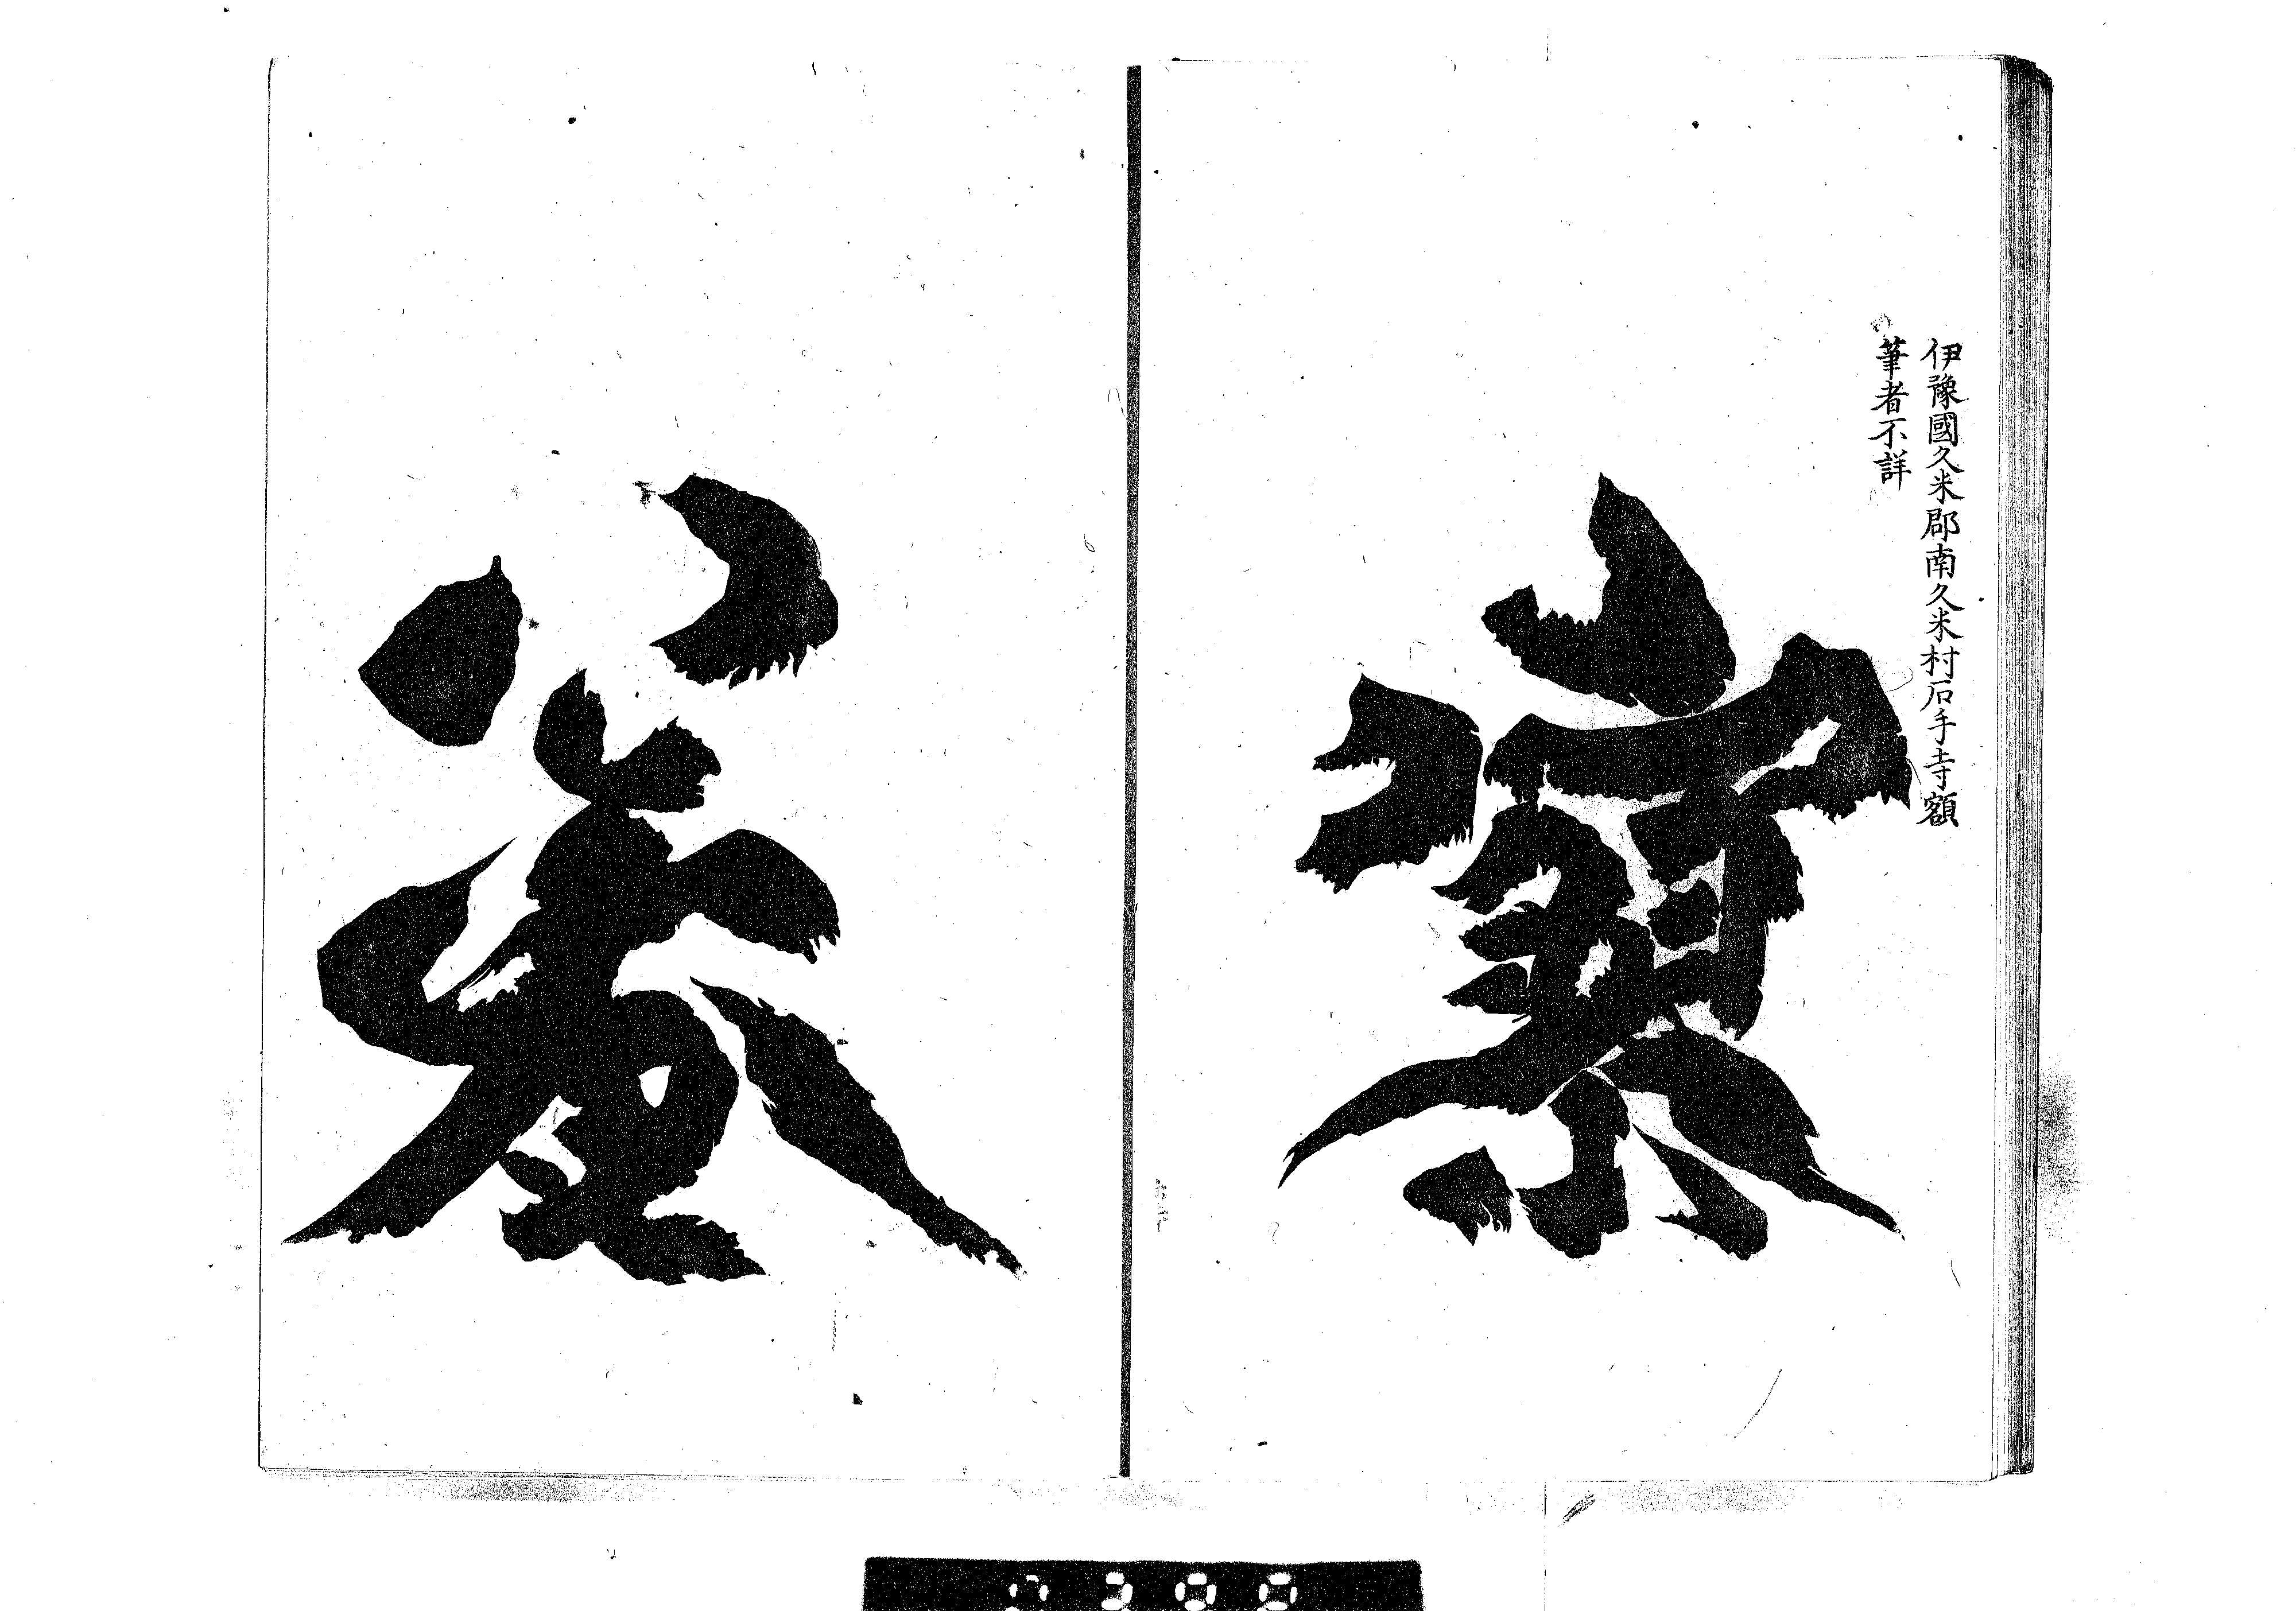 伊豫國久米郡南久米村石手寺額
筆者不詳
察